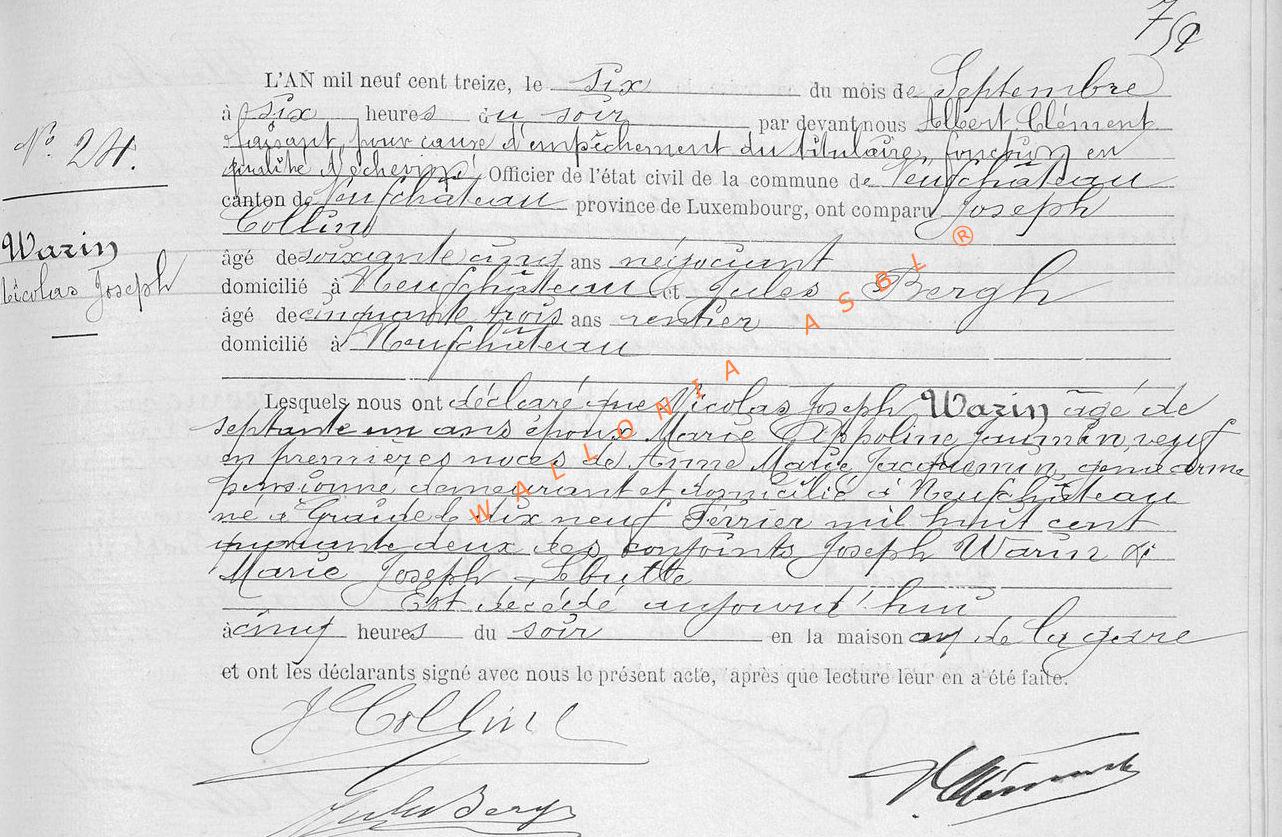 L'AN mil neuf cent treize, le six du mois de Septembre
à six heures du soir par devant nous Albert Clément
faisant, pour cause d'empêchement du titulaire, fonction en
qualité d'échevin Officier de l'état civil de la commune de Neufchâteau
canton de Neufchâteau province de Luxembourg, ont comparu Joseph
Collin
N° 24.
Warin
Nicolas Joseph
âgé de soixante cinq ans négociant
domicilié à Neufchâteau et Jules Bergh
âgé de cinquante trois ans rentier
domicilié à Neufchâteau
Lesquels nous ont déclaré que Nicolas Joseph Warin âgé de
septante un ans époux Marie Appoline Jaumin, veuf
en premières noces de Anne Marie Jacquemin, gendarme
pensionné demeurant et domicilié à Neufchâteau
né à Graide le dix neuf Février mil huit cent
quarante deux des conjoints Joseph Warin &
Marie Joseph Lebutte
Est décédé aujourd'hui
à cinq heures du soir en la maison de la gare
et ont les déclarants signé avec nous le présent acte, après que lecture leur en a été faite.
J Collin
Jules Bergh
Clément
WALLONIA ASBL ®